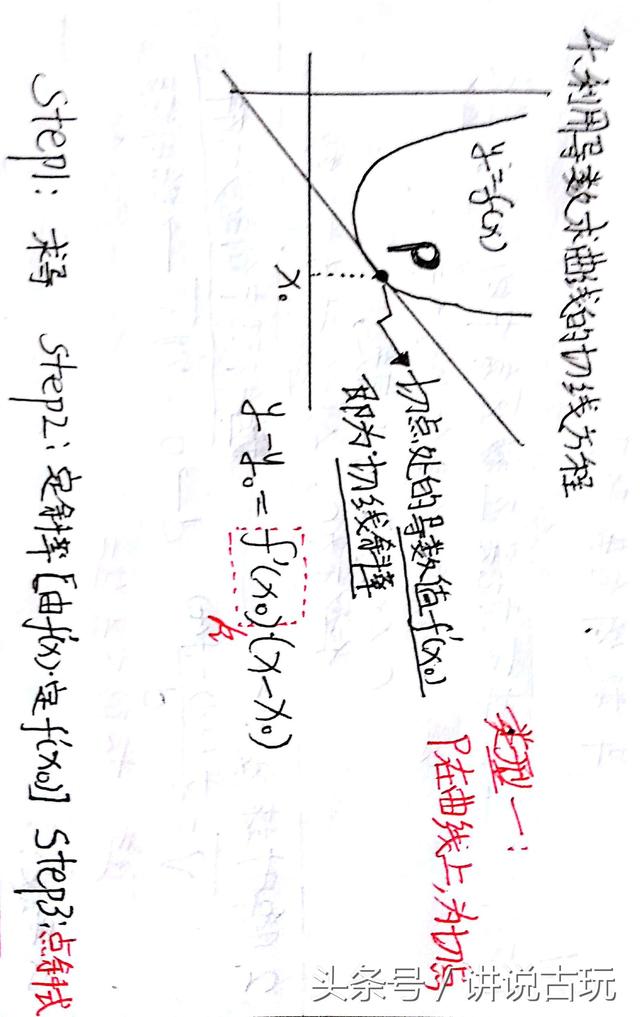 个.利用导数求曲线的切线方程
y=f(x)
P
x₀
切点处的导数值f'(x₀)
即为切线斜率
类型一：
P在曲线上，为切点
y-y₀=f'(x₀)·(x-x₀)
k
Step1: 求导 Step2: 定斜率[由f'(x)定f'(x₀)] Step3:点斜式
头条号/讲说古玩